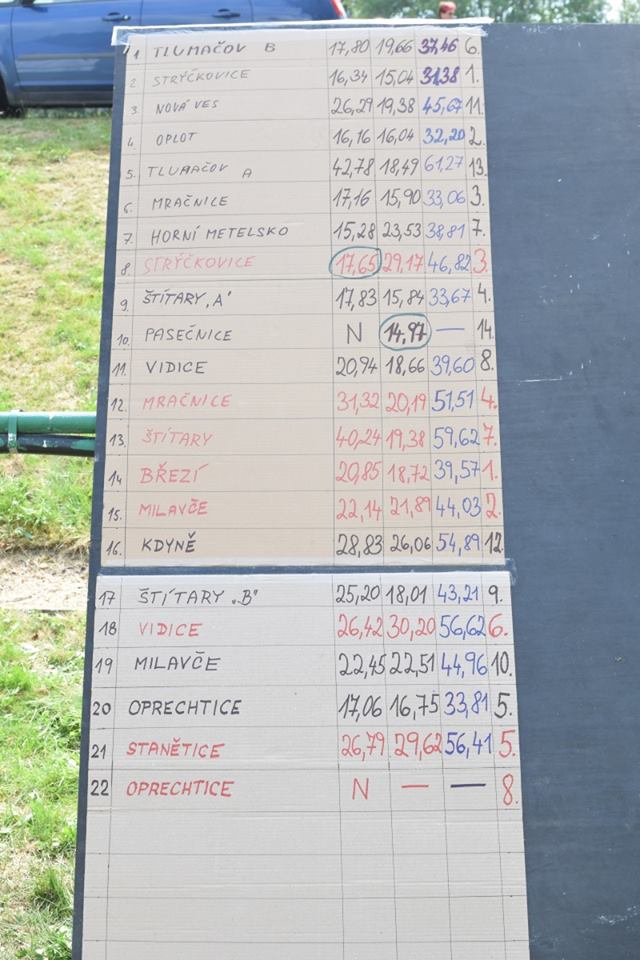 1 TLUMAČOV B 17,80 19,66 37,46 6.
2 STRÝČKOVICE 16,34 15,04 31,38 1.
3. NOVÁ VES 26,29 19,38 45,67 11.
4. OPLOT 16,16 16,04 32,20 2.
5. TLUMAČOV A 42,78 18,49 61,27 13.
6. MRAČNICE 17,16 15,90 33,06 3.
7. HORNÍ METELSKO 15,28 23,53 38,81 7.
8. STRÝČKOVICE 17,65 29,17 46,82 3.
9. ŠTÍTARY „A" 17,83 15,84 33,67 4.
10. PASEČNICE N 14,97 — 14.
11. VIDICE 20,94 18,66 39,60 8.
12. MRAČNICE 31,32 20,19 51,51 4.
13. ŠTÍTARY 40,24 19,38 59,62 7.
14 BŘEZÍ 20,85 18,72 39,57 1.
15. MILAVČE 22,14 21,89 44,03 2.
16. KDYNĚ 28,83 26,06 54,89 12.
17 ŠTÍTARY „B" 25,20 18,01 43,21 9.
18 VIDICE 26,42 30,20 56,62 6.
19 MILAVČE 22,45 22,51 44,96 10.
20 OPRECHTICE 17,06 16,75 33,81 5.
21 STANĚTICE 26,79 29,62 56,41 5.
22 OPRECHTICE N — — 8.